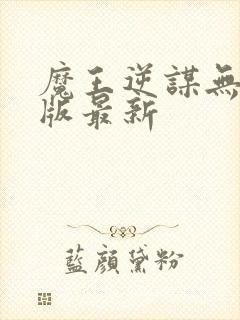 魔王逆謀無
版最新
藍顏黛粉